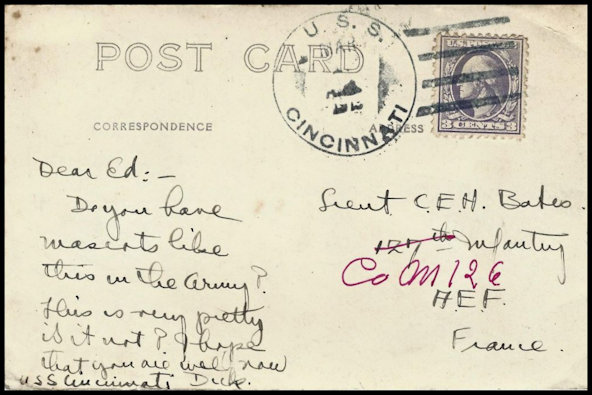 POST CARD
U.S.S.
MAR
CINCINNATI
U.S. POSTAGE
3 CENTS 3
CORRESPONDENCE
ADDRESS
Dear Ed:-
Do you have
mascots like
this in the Army?
This is very pretty
is it not? I hope
that you are well now
USS Cincinnati Dick.
Lieut C.E.H. Bates.
127th Infantry
Co M 126
A.E.F.
France.